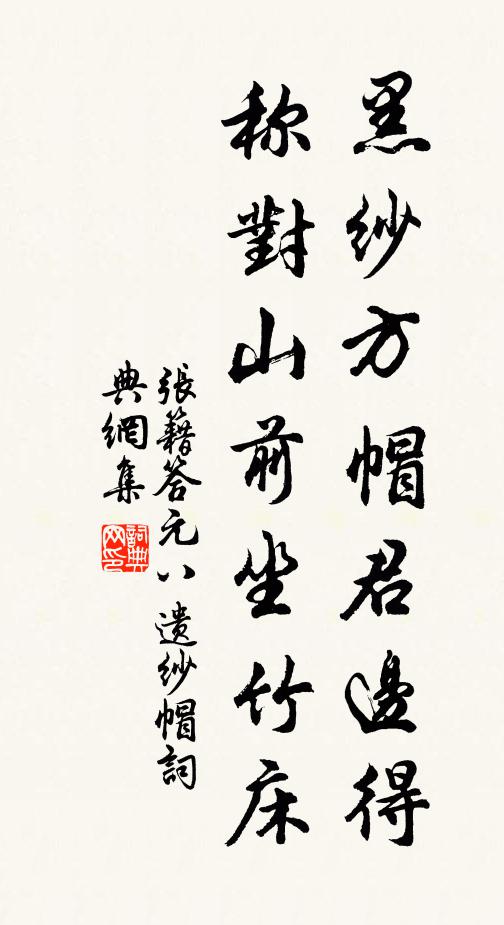 黑紗方帽君邊得
称對山前坐竹床
張籍答元八遺紗帽詞
典網集
詞典网印